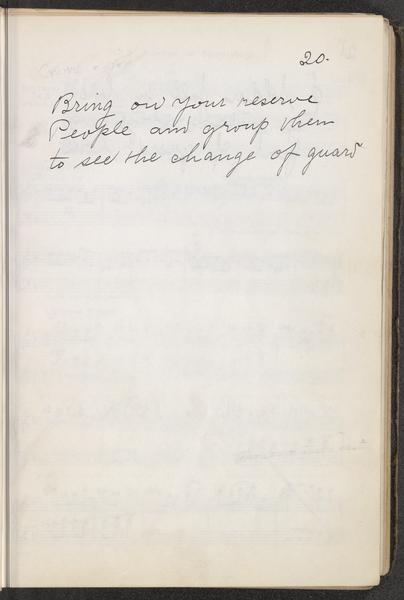 20.
Bring on your reserve
People and group them
to see the change of guard